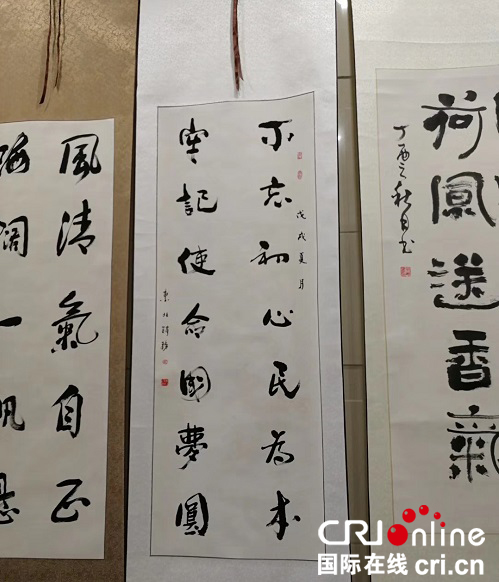 荷風送香氣
丁酉之秋月书
不忘初心民为本
戊戌夏月
牢記使命國夢圓
風清氣自正
海闊一帆懸
CRIonline
国际在线 cri.cn